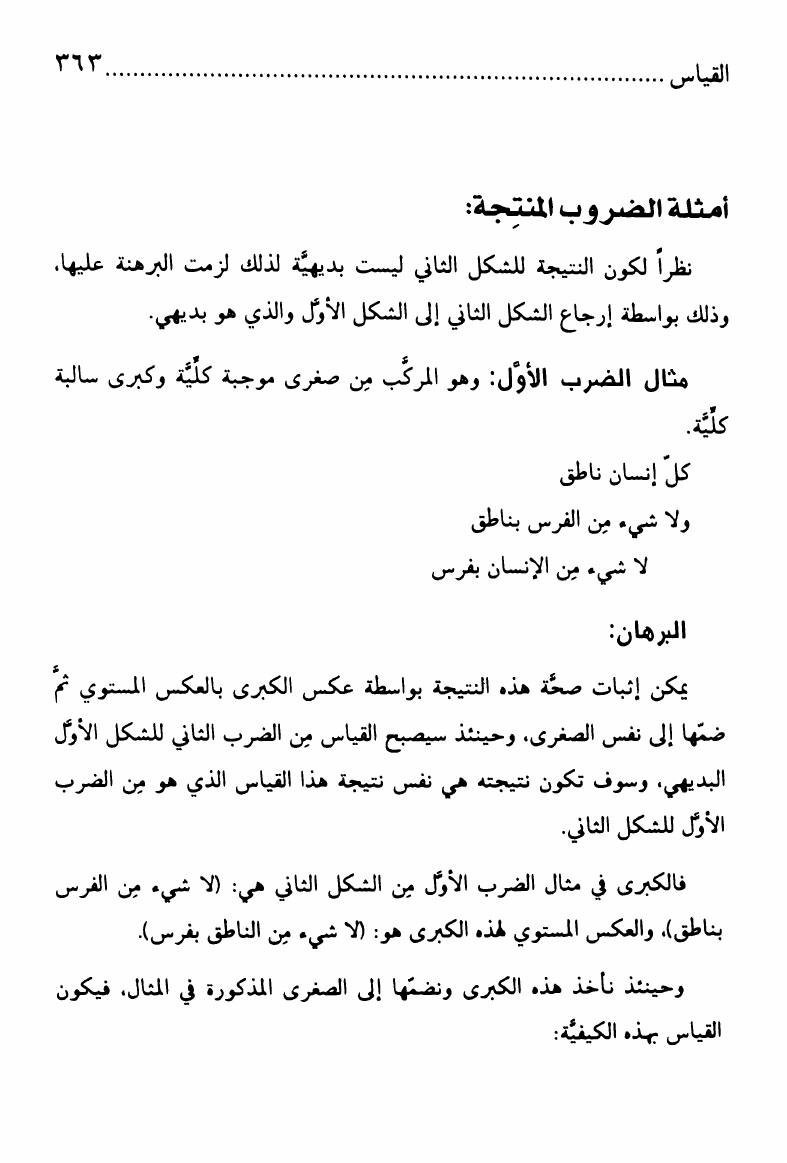 القياس ........................................................................... ٣٦٣
أمثلة الضروب المنتِجة:
نظراً لكون النتيجة للشكل الثاني ليست بديهيَّة لذلك لزمت البرهنة عليها،
وذلك بواسطة إرجاع الشكل الثاني إلى الشكل الأوَّل والذي هو بديهي.
مثال الضرب الأوَّل: وهو المركَّب مِن صغرى موجبة كلِّيَّة وكبرى سالبة
كلِّيَّة.
كلّ إنسان ناطق
ولا شيء مِن الفرس بناطق
لا شيء مِن الإنسان بفرس
البرهان:
يمكن إثبات صحَّة هذه النتيجة بواسطة عكس الكبرى بالعكس المستوي ثمَّ
ضمّها إلى نفس الصغرى، وحينئذ سيصبح القياس مِن الضرب الثاني للشكل الأوَّل
البديهي، وسوف تكون نتيجته هي نفس نتيجة هذا القياس الذي هو مِن الضرب
الأوَّل للشكل الثاني.
فالكبرى في مثال الضرب الأوَّل مِن الشكل الثاني هي: (لا شيء مِن الفرس
بناطق)، والعكس المستوي لهذه الكبرى هو: (لا شيء مِن الناطق بفرس).
وحينئذ نأخذ هذه الكبرى ونضمّها إلى الصغرى المذكورة في المثال، فيكون
القياس بهذه الكيفيَّة: